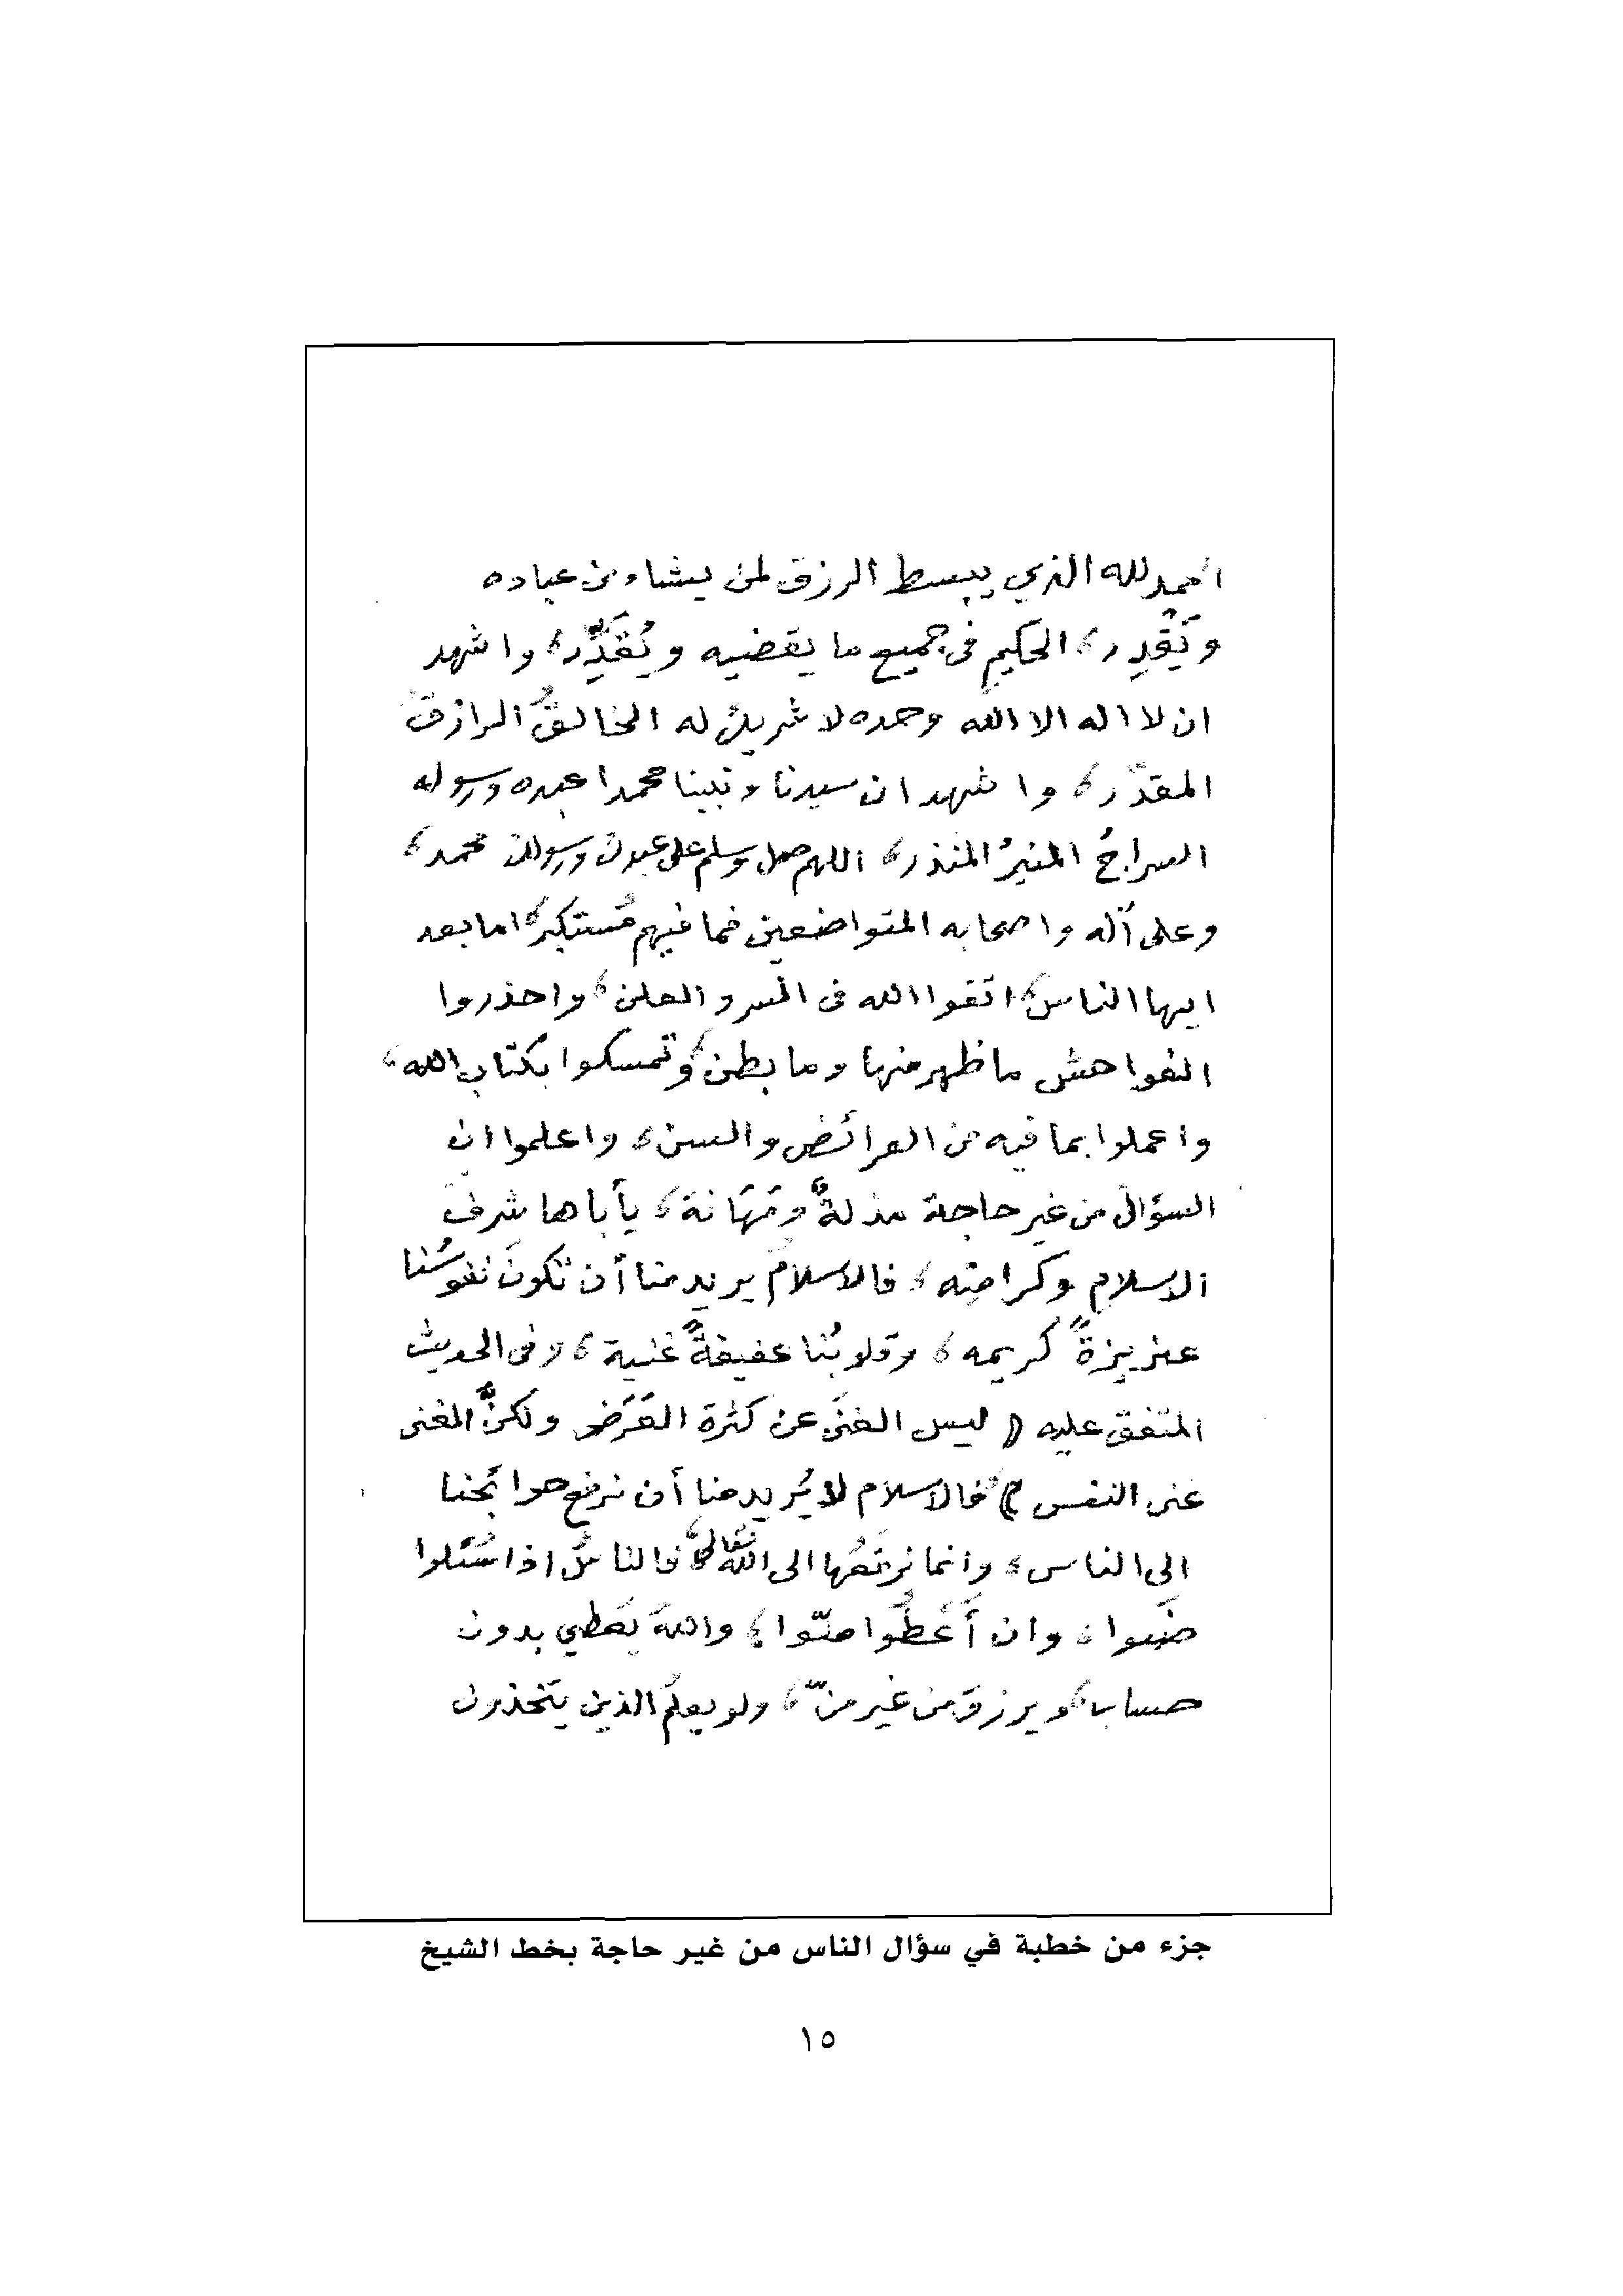 الحمد لله الذي يبسط الرزق لمن يشاء من عباده
وَيَقْدِر، الحكيم في جميع ما يقضيه ويُقَدِّر، واشهد
ان لا اله الا الله وحده لا شريك له الخالقُ الرازق
المقدّر، واشهد ان سيدنا ونبينا محمدا عبده ورسوله
السراجُ المنيرُ المنذر، اللهم صل وسلم على عبدك ورسولك محمد،
وعلى آله واصحابه المتواضعين فما فيهم مُستكبر، اما بعد
ايها الناس، اتقوا الله في السر والعلن، واحذروا
الفواحش ما ظهر منها وما بطن، وتمسكوا بكتاب الله،
واعملوا بما فيه من الفرائض والسنن، واعلموا ان
السؤالَ من غير حاجة مذلةٌ ومَهَانة، يأباها شرف
الاسلام وكرامته، فالاسلامُ يريد منا أن تكونَ نفوسُنا
عزيزةً كريمه، وقلوبُنا عفيفةً غنية، وفي الحديث
المتفق عليه (( ليس الغنَى عن كثرة العَرَض ولكنَّ الغنى
غنى النفس )) فالاسلام لا يُريد منا أن نرفع حوائجنا
الى الناس، وانما نرفعُها الى الله تعالى، فالناسُ اذا سُئلوا
ضَنوا، وان أَعْطَوا منّوا، واللهُ يُعطي بدون
حساب، ويرزق من غير منّ، ولو يعلمُ الذين يتخذون
جزء من خطبة في سؤال الناس من غير حاجة بخط الشيخ
١٥